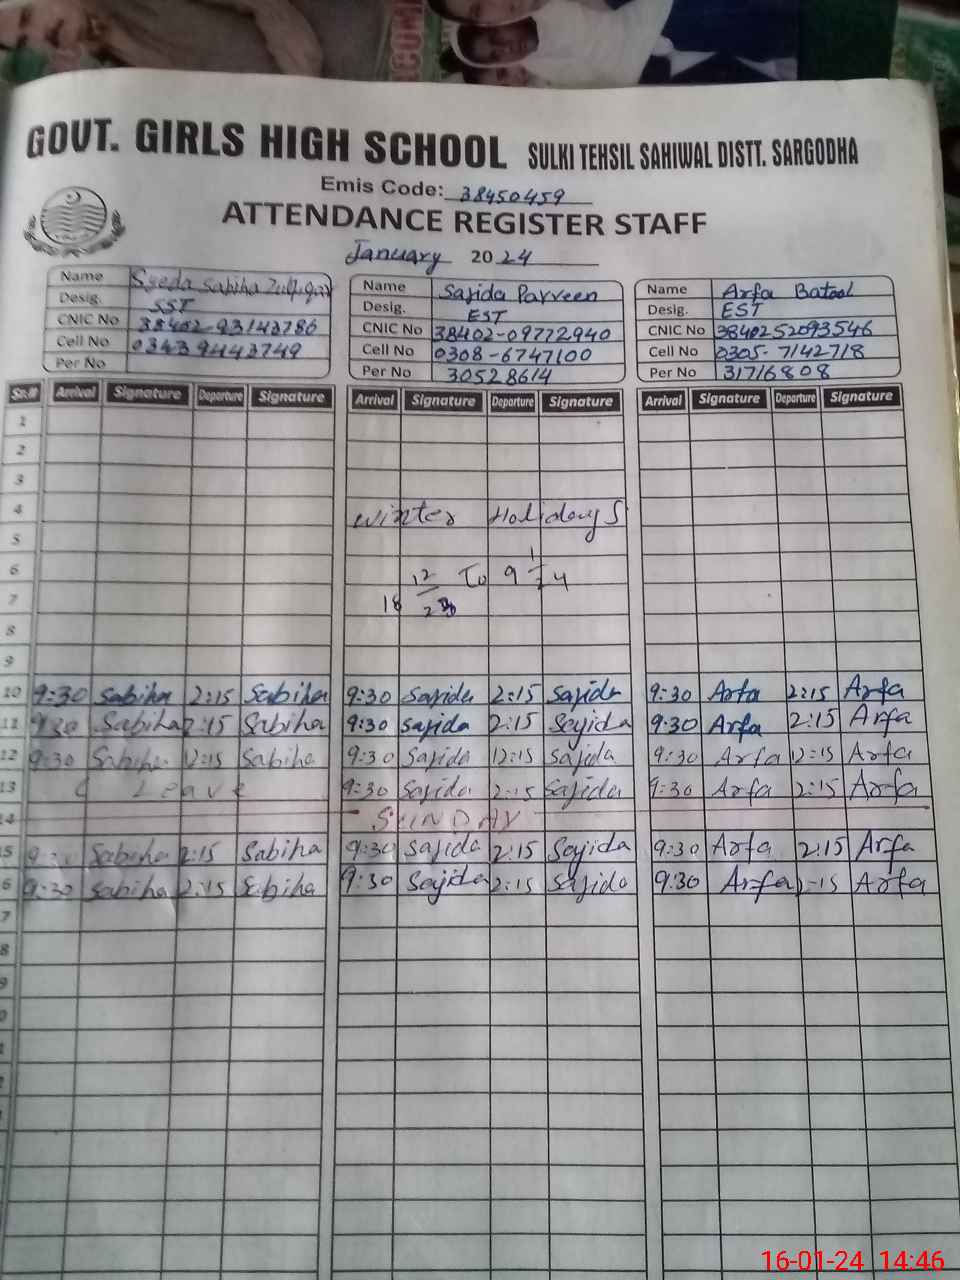 GOVT. GIRLS HIGH SCHOOL SULKI TEHSIL SAHIWAL DISTT. SARGODHA
Emis Code: 38450459
ATTENDANCE REGISTER STAFF
January 2024
Name Syeda Sabiha Zulfiqar Name Sajida Parveen Name Arfa Batool
Desig. SST Desig. EST Desig. EST
CNIC No 38402-93143786 CNIC No 38402-09772940 CNIC No 3840252093546
Cell No 03439443749 Cell No 0308-6747100 Cell No 0305-7142718
Per No Per No 30528614 Per No 31716808
Sr.# Arrival Signature Departure Signature Arrival Signature Departure Signature Arrival Signature Departure Signature
1
2
3
4 Winter Holidays
5
6 12 To 9 1
7 18
8
9
10 9:30 Sabiha 2:15 Sabiha 9:30 Sajida 2:15 Sajida 9:30 Arfa 2:15 Arfa
11 9:30 Sabiha 2:15 Sabiha 9:30 Sajida 2:15 Sajida 9:30 Arfa 2:15 Arfa
12 9:30 Sabiha 12:15 Sabiha 9:30 Sajida 12:15 Sajida 9:30 Arfa 12:15 Arfa
13 C Leave 9:30 Sajida 2:15 Sajida 9:30 Arfa 2:15 Arfa
14 SUNDAY
15 Sabiha 2:15 Sabiha 9:30 Sajida 2:15 Sajida 9:30 Arfa 2:15 Arfa
6 9:30 Sabiha 2:15 Sabiha 9:30 Sajida 2:15 Sajida 9:30 Arfa 2:15 Arfa
7
8
9
0
1
2
16-01-24 14:46